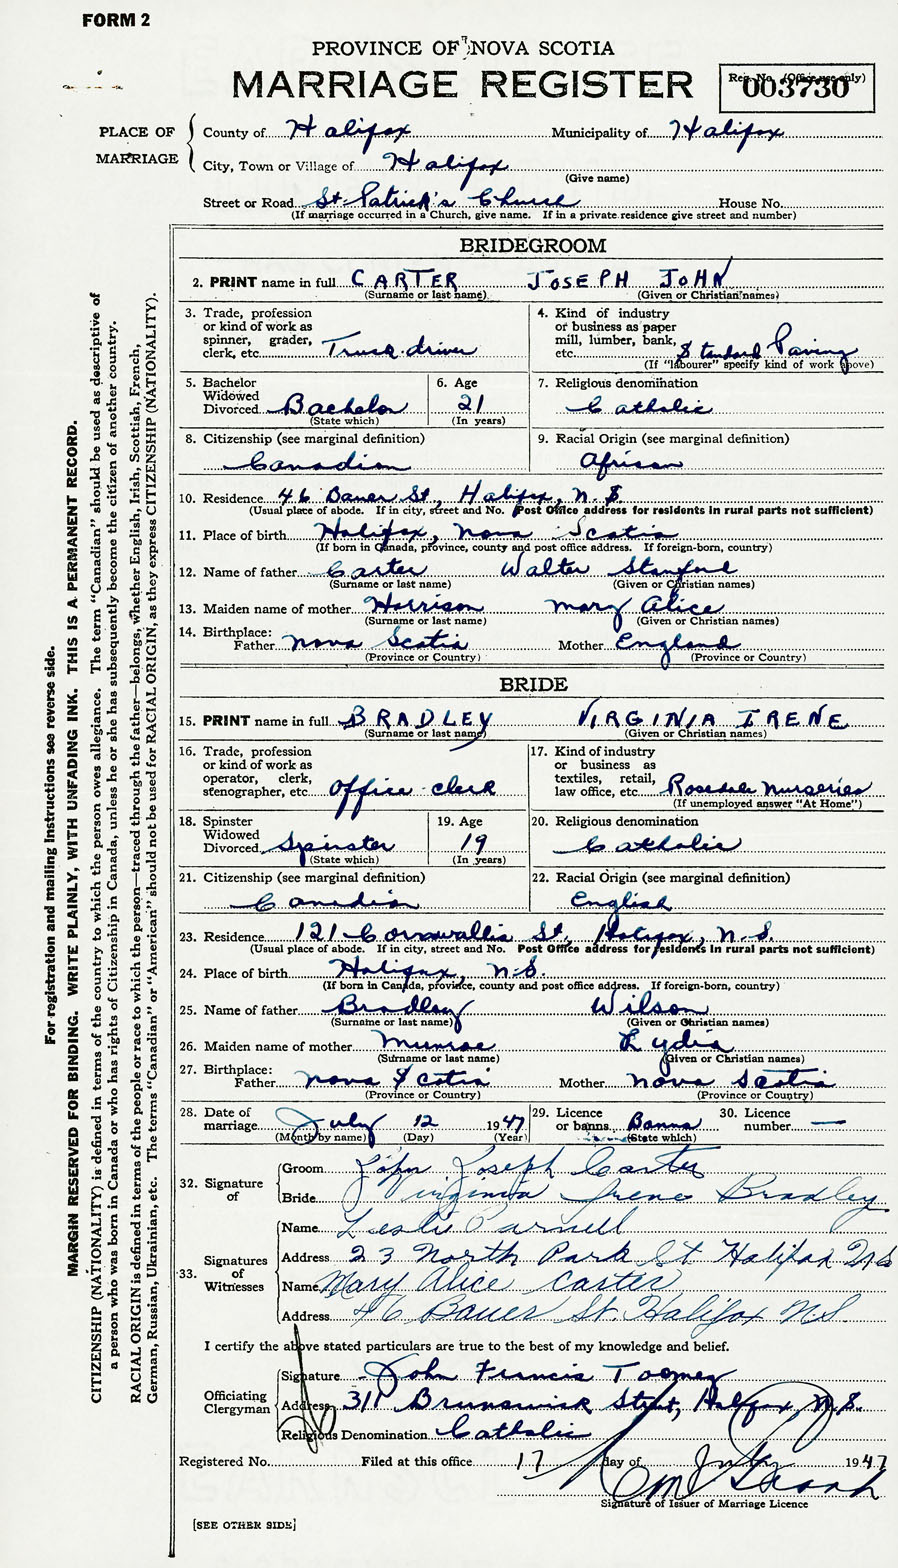 FORM 2
PROVINCE OF NOVA SCOTIA
MARRIAGE REGISTER
Reg. No. (Office use only)
003730
PLACE OF MARRIAGE
County of Halifax Municipality of Halifax
City, Town or Village of Halifax
(Give name)
Street or Road St. Patrick's Church House No.
(If marriage occurred in a Church, give name. If in a private residence give street and number)
BRIDEGROOM
2. PRINT name in full CARTER JOSEPH JOHN
(Surname or last name) (Given or Christian names)
3. Trade, profession or kind of work as spinner, grader, clerk, etc. Truck driver
4. Kind of industry or business as paper mill, lumber, bank, etc. Standard Paving
(If "labourer" specify kind of work above)
5. Bachelor Widowed Divorced Bachelor
(State which)
6. Age 21
(In years)
7. Religious denomination
Catholic
8. Citizenship (see marginal definition)
Canadian
9. Racial Origin (see marginal definition)
African
10. Residence 46 Bauer St, Halifax, N.S
(Usual place of abode. If in city, street and No. Post Office address for residents in rural parts not sufficient)
11. Place of birth Halifax, Nova Scotia
(If born in Canada, province, county and post office address. If foreign-born, country)
12. Name of father Carter Walter Stanford
(Surname or last name) (Given or Christian names)
13. Maiden name of mother Harrison Mary Alice
(Surname or last name) (Given or Christian names)
14. Birthplace:
Father Nova Scotia Mother England
(Province or Country) (Province or Country)
BRIDE
15. PRINT name in full BRADLEY VIRGINIA IRENE
(Surname or last name) (Given or Christian names)
16. Trade, profession or kind of work as operator, clerk, stenographer, etc. Office clerk
17. Kind of industry or business as textiles, retail, law office, etc. Rosedale Nurseries
(If unemployed answer "At Home")
18. Spinster Widowed Divorced Spinster
(State which)
19. Age 19
(In years)
20. Religious denomination
Catholic
21. Citizenship (see marginal definition)
Canadian
22. Racial Origin (see marginal definition)
English
23. Residence 121 Cornwallis St, Halifax, N.S.
(Usual place of abode. If in city, street and No. Post Office address for residents in rural parts not sufficient)
24. Place of birth Halifax, N.S.
(If born in Canada, province, county and post office address. If foreign-born, country)
25. Name of father Bradley Wilson
(Surname or last name) (Given or Christian names)
26. Maiden name of mother Munroe Lydia
(Surname or last name) (Given or Christian names)
27. Birthplace:
Father Nova Scotia Mother Nova Scotia
(Province or Country) (Province or Country)
28. Date of marriage July 12 1947
(Month by name) (Day) (Year)
29. Licence or banns Banns
(State which)
30. Licence number —
32. Signature of
Groom John Joseph Carter
Bride Virginia Irene Bradley
33. Signatures of Witnesses
Name Leslie Parnell
Address 23 North Park St Halifax N.S
Name Mary Alice Carter
Address 46 Bauer St. Halifax N.S.
I certify the above stated particulars are true to the best of my knowledge and belief.
Officiating Clergyman
Signature John Francis Toomey
Address 311 Brunswick Street, Halifax, N.S.
Religious Denomination Catholic
Registered No. Filed at this office 17 day of July 1947
Signature of Issuer of Marriage Licence
[SEE OTHER SIDE]
For registration and mailing instructions see reverse side.
MARGIN RESERVED FOR BINDING. WRITE PLAINLY, WITH UNFADING INK. THIS IS A PERMANENT RECORD.
CITIZENSHIP (NATIONALITY) is defined in terms of the country to which the person owes allegiance. The term "Canadian" should be used as descriptive of
a person who was born in Canada or who has rights of Citizenship in Canada, unless he or she has subsequently become the citizen of another country.
RACIAL ORIGIN is defined in terms of the people or race to which the person—traced through the father—belongs, whether English, Irish, Scottish, French,
German, Russian, Ukrainian, etc. The terms "Canadian" or "American" should not be used for RACIAL ORIGIN, as they express CITIZENSHIP (NATIONALITY).